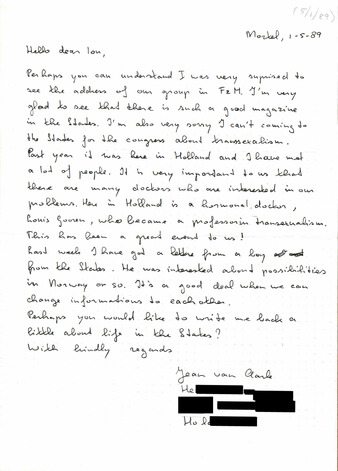 (5/1/89)
Morkel, 1-5-89
Hello dear Lou,
Perhaps you can understand I was very suprised to
see the address of our group in F2M. I'm very
glad to see that there is such a good magazine
in the States. I'm also very sorry I can't coming to
the States for the congress about transsexalism.
Past year it was here in Holland and I have met
a lot of people. It is very important to us that
there are many doctors who are interested in our
problems. Her in Holland is a hormonal doctor,
Louis Gooren, who became a professor in transexualism.
This has been a great event to us!
Last week I have got a lettre from a boy
from the States. He was interested about possibilities
in Norway or so. It's a good deal when we can
change informations to each other.
Perhaps you would like to write me back a
little about life in the States?
With kindly regards
Jean van
He
Hol